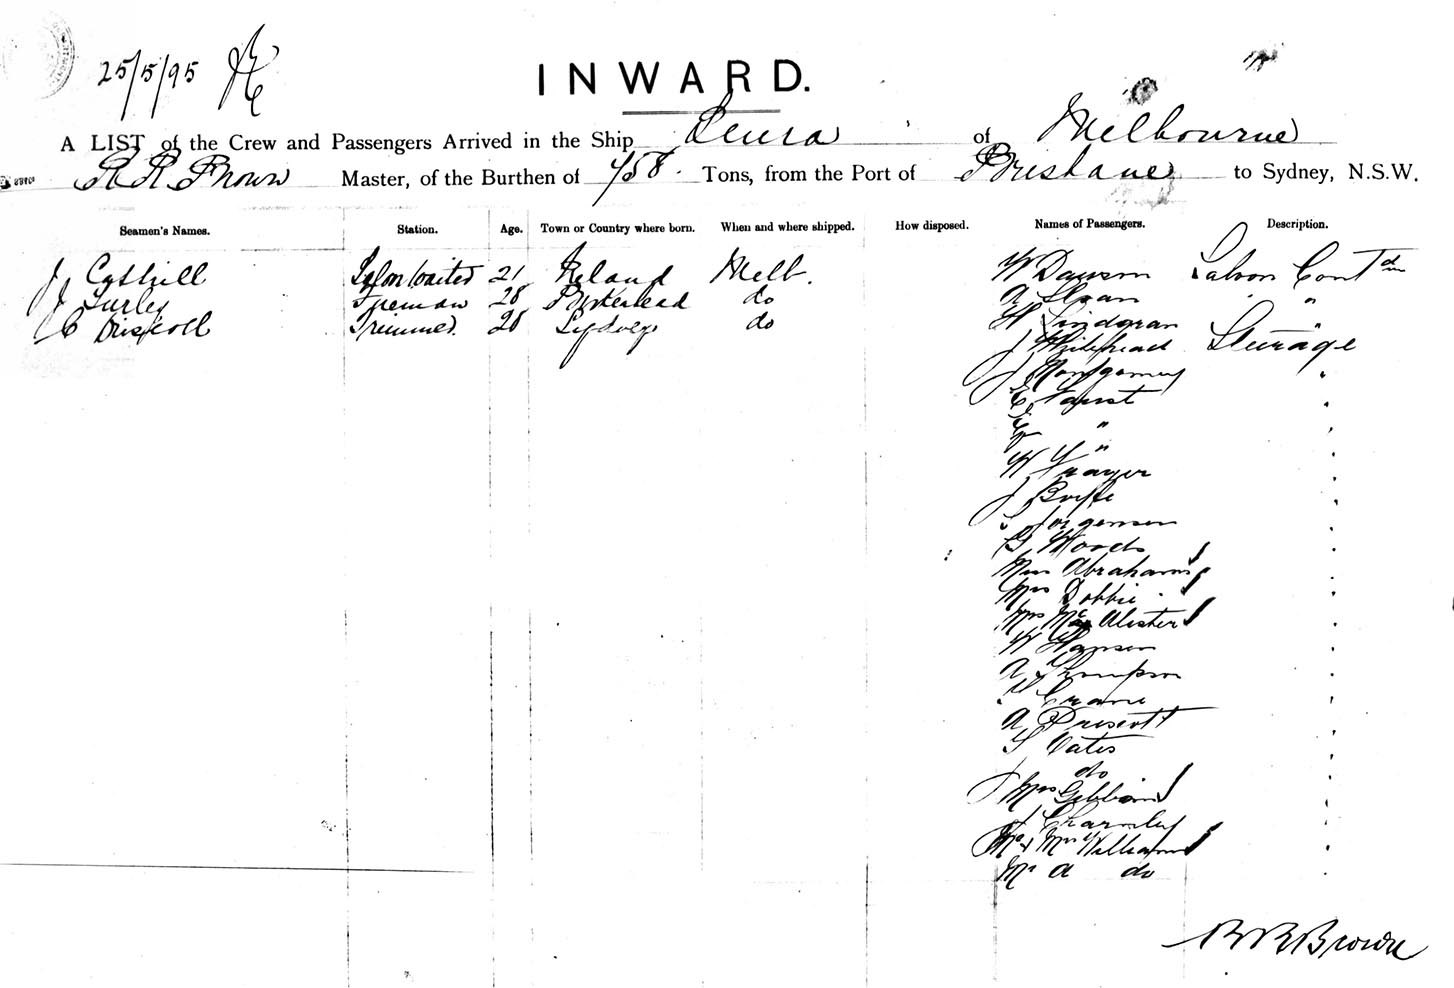 25/5/95
INWARD.
A LIST of the Crew and Passengers Arrived in the Ship Leura of Melbourne
R R Brown Master, of the Burthen of 758 Tons, from the Port of Brisbane to Sydney, N.S.W.
Seamen's Names. Station. Age. Town or Country where born. When and where shipped. How disposed. Names of Passengers. Description.
J 21 Ireland Melb. W Dawson Saloon Contd
J Turley Fireman 28 Birkenhead do A Sloan "
C Driscoll Trimmer 28 do W Lindgran "
J Whitehead Steurage
J Montgomery "
E Faust "
"
W "
J
Jorgensen "
G Woods "
Miss Abrahams "
Mrs Dobbie "
Mrs McAlister "
W Hansen "
A Thompson "
Crane "
A Prescott "
S Oates "
J do "
Mrs Gibbons "
J Charnley "
Mr & Mrs Williams "
Mr A do "
R R Brown